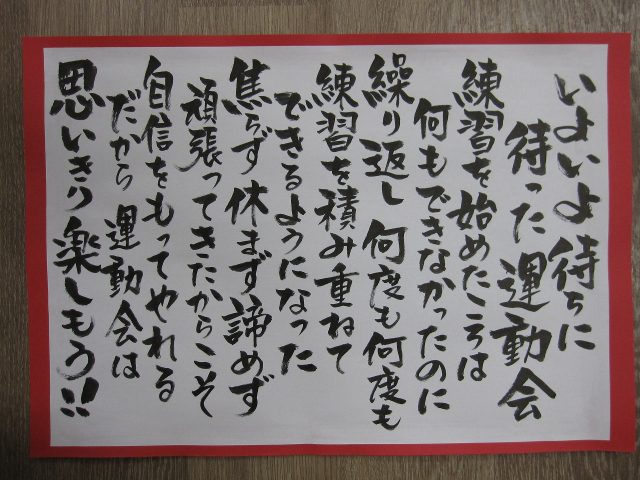 いよいよ待ちに
待った運動会
練習を始めたころは
何もできなかったのに
繰り返し何度も何度も
練習を積み重ねて
できるようになった
焦らず休まず諦めず
頑張ってきたからこそ
自信をもってやれる
だから運動会は
思いきり楽しもう!!